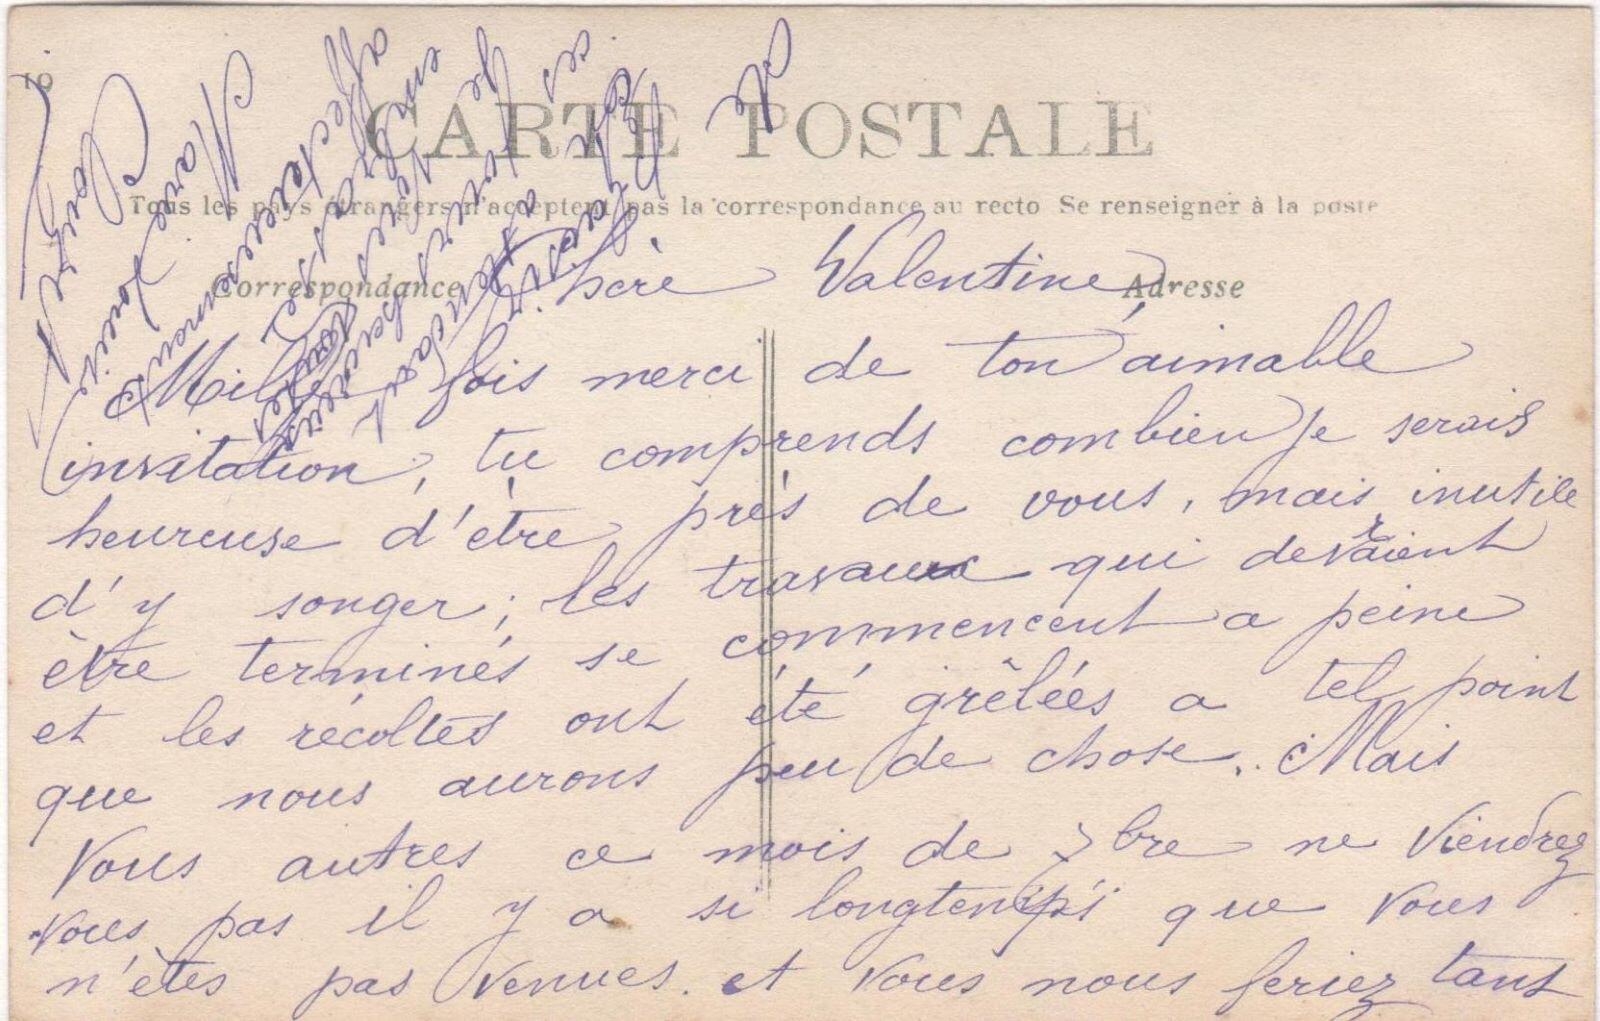 10
CARTE POSTALE
Tous les pays étrangers n'acceptent pas la correspondance au recto Se renseigner à la poste
Correspondance
Adresse
Chère Valentine
Mille fois merci de ton aimable
invitation, tu comprends combien je serais
heureuse d'être près de vous, mais inutile
d'y songer; les travaux qui devraient
être terminés se commencent a peine
et les récoltes ont été grêlées a tel point
que nous aurons peu de chose. Mais
Vous autres ce mois de 7bre ne viendrez
vous pas il y a si longtemps que vous
n'êtes pas venues. et vous nous feriez tant
de
plaisir
ces
Je
embrasse
toutes
affectueusement
Marie Louise